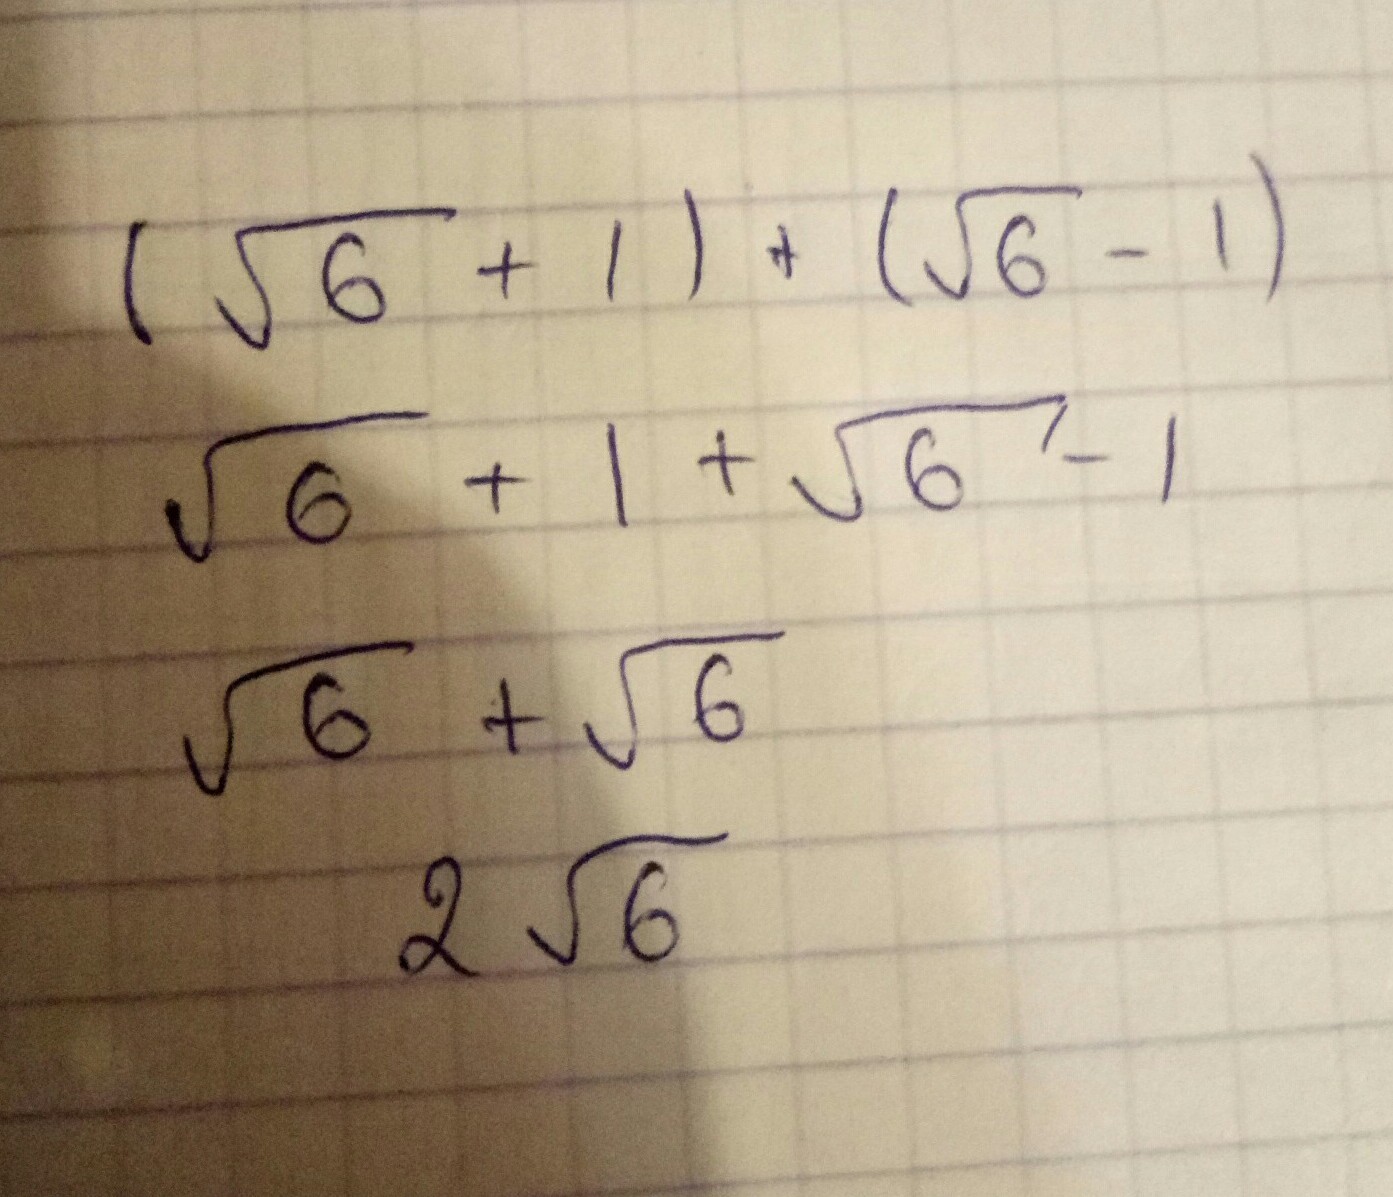 (√6 + 1) + (√6 - 1)
√6 + 1 + √6 - 1
√6 + √6
2√6